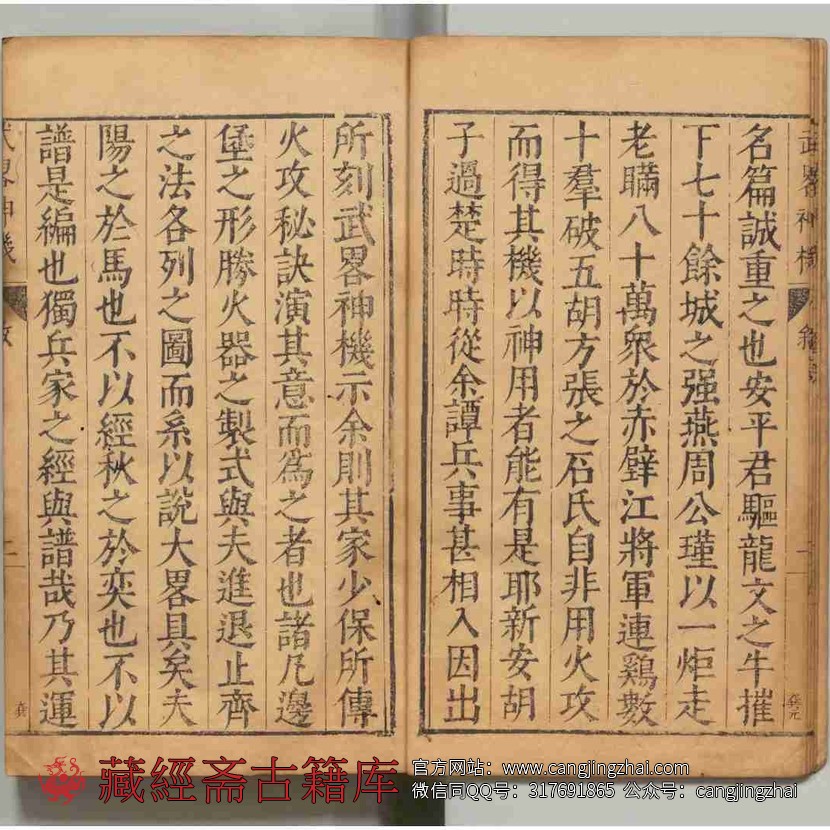 武畧神機
敘
名篇誠重之也安平君驅龍文之牛摧
下七十餘城之强燕周公瑾以一炬走
老瞞八十萬衆於赤壁江將軍連鷄數
十羣破五胡方張之石氏自非用火攻
而得其機以神用者能有是耶新安胡
子過楚時時從余譚兵事甚相入因出
所刻武畧神機示余則其家少保所傳
火攻秘訣演其意而爲之者也諸凡邊
堡之形勝火器之製式與夫進退止齊
之法各列之圖而系以說大畧具矣夫
陽之於馬也不以經秋之於奕也不以
譜是編也獨兵家之經與譜哉乃其運
武畧神機
二
藏經斋古籍库
官方网站：www.cangjingzhai.com
微信同QQ号：317691865 公众号：cangjingzhai